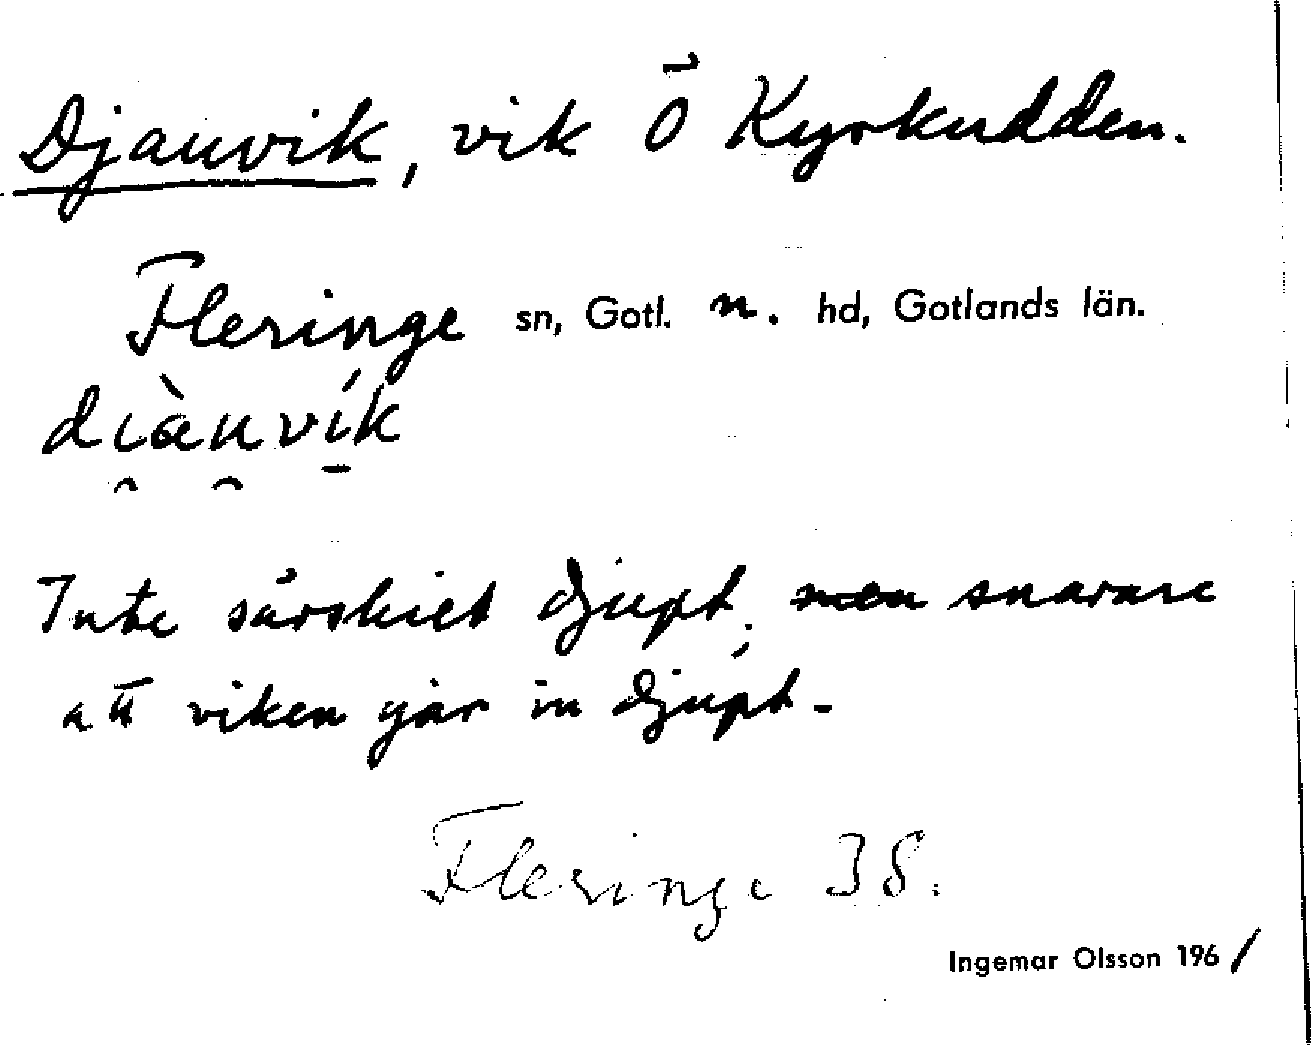 Djauvik, vik Ö Kyrkudden.
Fleringe sn, Gotl. n. hd, Gotlands län.
di̯àu̯ví̱k
Inte särskilt djupt; ~~men~~ snarare
att viken går in djupt.
Fleringe 38.
Ingemar Olsson 1961